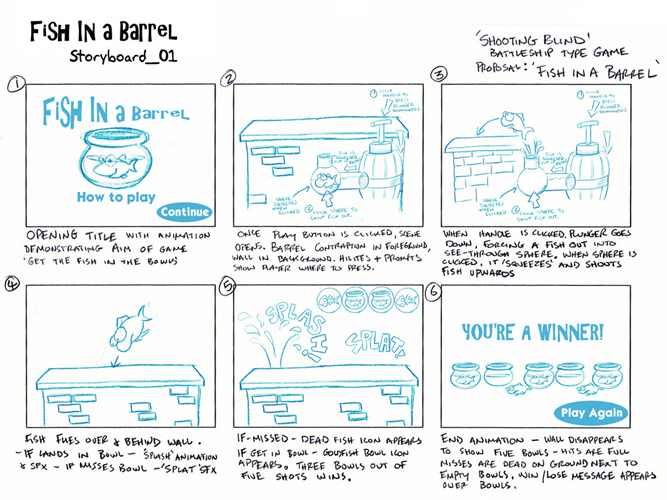 FISH IN A BARREL
Storyboard_01
'SHOOTING BLIND'
BATTLESHIP TYPE GAME
PROPOSAL: 'FISH IN A BARREL'
1
FISH IN a BARREL
How to play
Continue
OPENING TITLE WITH ANIMATION
DEMONSTRATING AIM OF GAME
'GET THE FISH IN THE BOWLS'
2
① CLICK
HANDLE TO
PRESS
PLUNGER
DOWNWARDS
FISH IS
SQUEEZED
SPHERE
SQUEEZES
WHEN
CLICKED
② CLICK SPHERE TO
SHOOT FISH OUT.
ONCE PLAY BUTTON IS CLICKED, SCENE
OPENS. BARREL CONTRAPTION IN FOREGROUND,
WALL IN BACKGROUND. HILITES + PROMPTS
SHOW PLAYER WHERE TO PRESS.
3
① CLICK
HANDLE TO
PRESS
PLUNGER
DOWNWARDS
FISH IS
SQUEEZED
SPHERE
SQUEEZES
WHEN
CLICKED
② CLICK SPHERE TO
SHOOT FISH OUT.
WHEN HANDLE IS CLICKED, PLUNGER GOES
DOWN, FORCING A FISH OUT INTO
SEE-THROUGH SPHERE. WHEN SPHERE IS
CLICKED, IT 'SQUEEZES' AND SHOOTS
FISH UPWARDS
4
FISH FLIES OVER & BEHIND WALL.
- IF LANDS IN BOWL - 'SPLASH' ANIMATION
& SFX - IF MISSES BOWL - 'SPLAT' SFX
5
SPLASH!!
SPLAT!
IF MISSED - DEAD FISH ICON APPEARS
IF GET IN BOWL - GOLDFISH BOWL ICON
APPEARS. THREE BOWLS OUT OF
FIVE SHOTS WINS.
6
YOU'RE A WINNER!
Play Again
END ANIMATION - WALL DISAPPEARS
TO SHOW FIVE BOWLS - HITS ARE FULL
MISSES ARE DEAD ON GROUND NEXT TO
EMPTY BOWLS. WIN/LOSE MESSAGE APPEARS
OVER BOWLS.